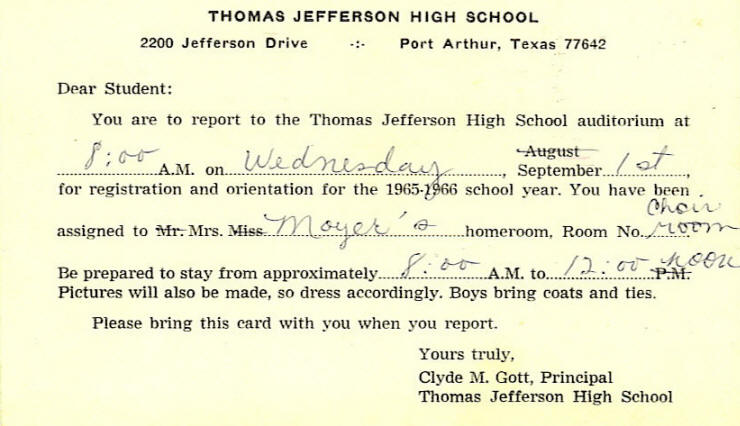 THOMAS JEFFERSON HIGH SCHOOL
2200 Jefferson Drive -:- Port Arthur, Texas 77642
Dear Student:
You are to report to the Thomas Jefferson High School auditorium at
August
8:00 A.M. on Wednesday, September 1st,
for registration and orientation for the 1965-1966 school year. You have been
Choir
assigned to Mr. Mrs. Miss Moyer's homeroom, Room No. room
Be prepared to stay from approximately 8:00 A.M. to 12:00 noon P.M.
Pictures will also be made, so dress accordingly. Boys bring coats and ties.
Please bring this card with you when you report.
Yours truly,
Clyde M. Gott, Principal
Thomas Jefferson High School